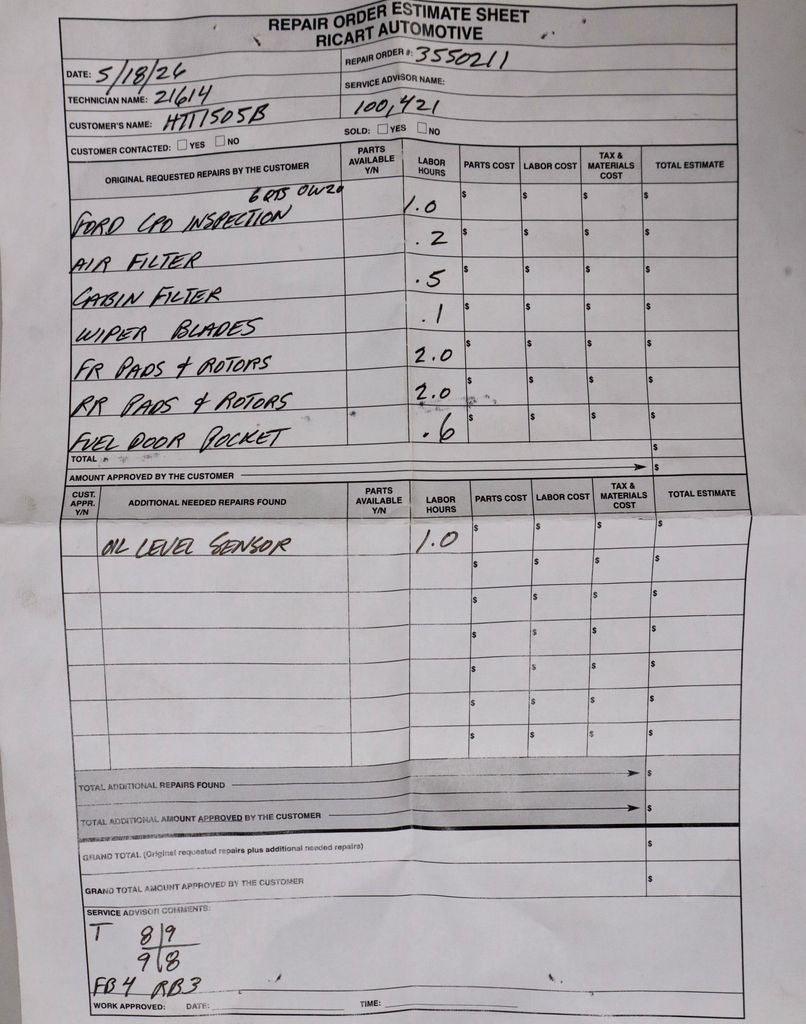 REPAIR ORDER ESTIMATE SHEET
RICART AUTOMOTIVE
DATE: 5/18/26
REPAIR ORDER #: 3550211
TECHNICIAN NAME: 21614
SERVICE ADVISOR NAME:
CUSTOMER'S NAME: HTT1505B
100,421
CUSTOMER CONTACTED: YES NO
SOLD: YES NO
ORIGINAL REQUESTED REPAIRS BY THE CUSTOMER PARTS AVAILABLE Y/N LABOR HOURS PARTS COST LABOR COST TAX & MATERIALS COST TOTAL ESTIMATE
6 QTS 0W20
FORD CPO INSPECTION 1.0 $ $ $ $
AIR FILTER .2 $ $ $ $
CABIN FILTER .5 $ $ $ $
WIPER BLADES .1 $ $ $ $
FR PADS & ROTORS 2.0 $ $ $ $
RR PADS & ROTORS 2.0 $ $ $ $
FUEL DOOR POCKET .6 $ $ $ $
TOTAL $
AMOUNT APPROVED BY THE CUSTOMER $
CUST. APPR. Y/N ADDITIONAL NEEDED REPAIRS FOUND PARTS AVAILABLE Y/N LABOR HOURS PARTS COST LABOR COST TAX & MATERIALS COST TOTAL ESTIMATE
OIL LEVEL SENSOR 1.0 $ $ $ $
$ $ $ $
$ $ $ $
$ $ $ $
$ $ $ $
$ $ $ $
$ $ $ $
TOTAL ADDITIONAL REPAIRS FOUND $
TOTAL ADDITIONAL AMOUNT APPROVED BY THE CUSTOMER $
GRAND TOTAL (Original requested repairs plus additional needed repairs) $
GRAND TOTAL AMOUNT APPROVED BY THE CUSTOMER $
SERVICE ADVISOR COMMENTS:
T 8 9
9 8
FB4 RB3
WORK APPROVED: DATE: TIME: